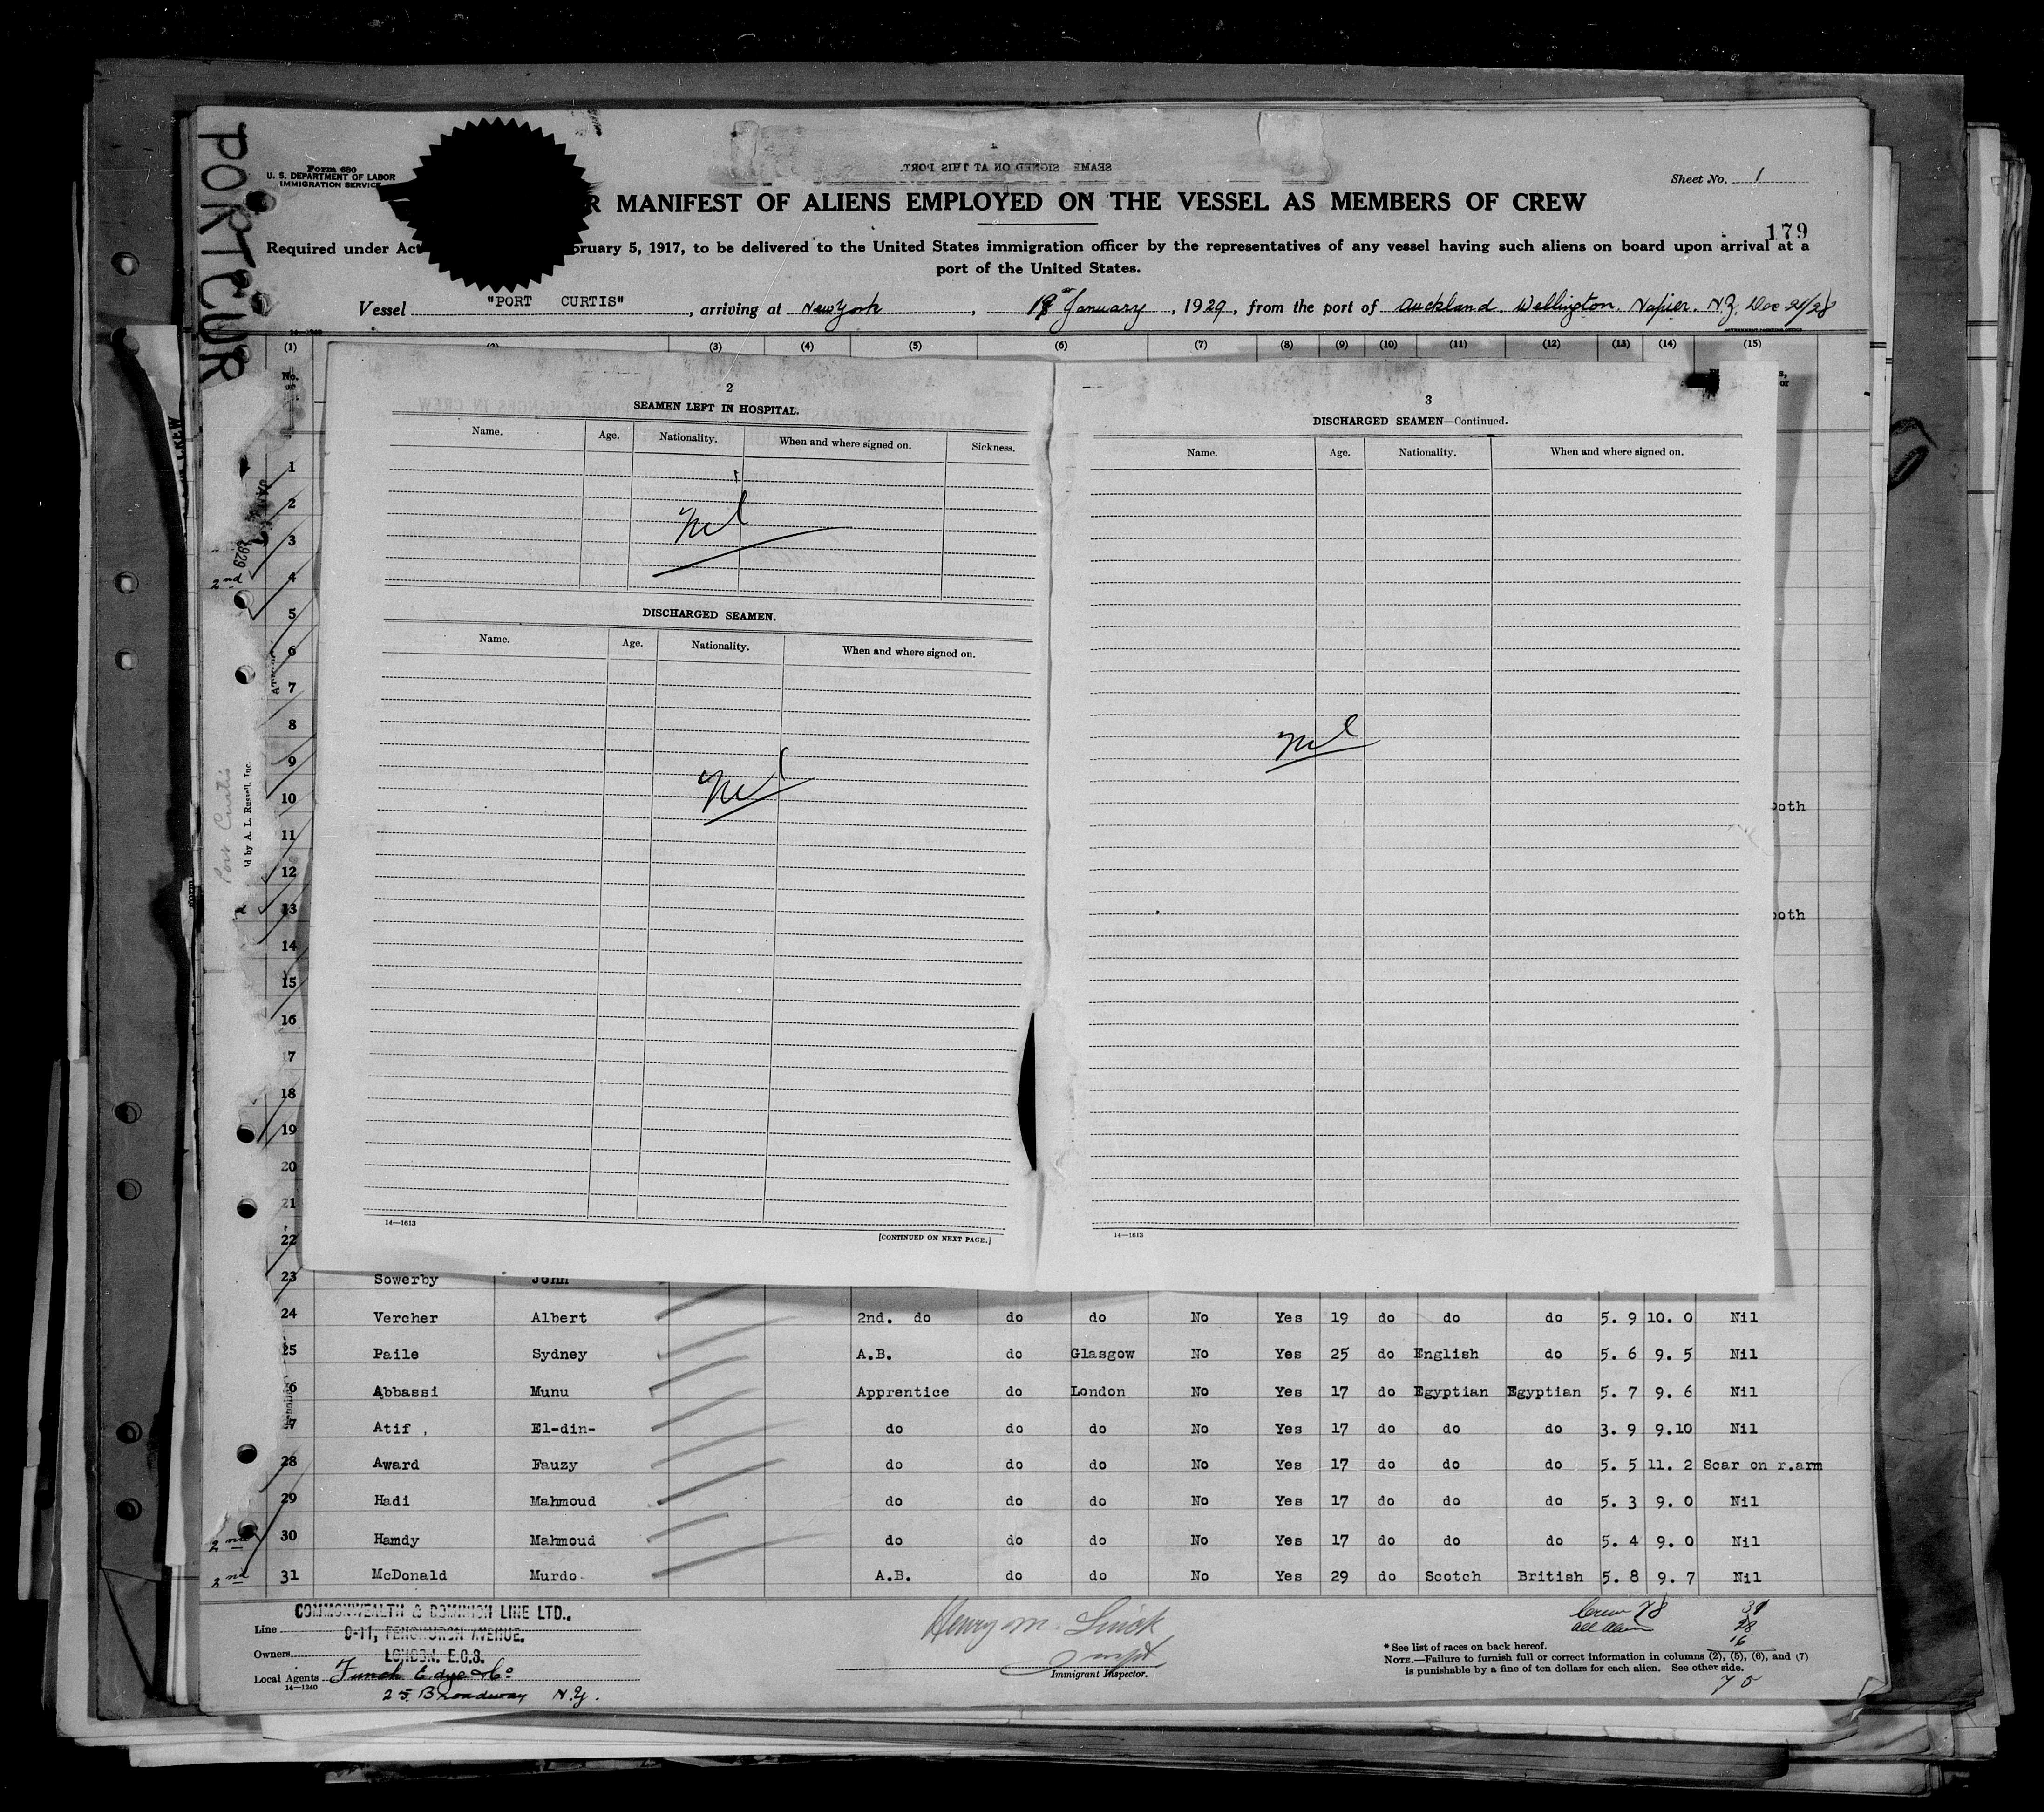 PORT CUR
Form 680
U. S. DEPARTMENT OF LABOR
IMMIGRATION SERVICE
SEAME SIGNED ON AT THIS PORT.
Sheet No. 1
R MANIFEST OF ALIENS EMPLOYED ON THE VESSEL AS MEMBERS OF CREW
179
Required under Act bruary 5, 1917, to be delivered to the United States immigration officer by the representatives of any vessel having such aliens on board upon arrival at a
port of the United States.
Vessel "PORT CURTIS", arriving at New York, January, 1929, from the port of Auckland. Wellington. Napier. N.Z. Dec
(1) (3) (4) (5) (6) (7) (8) (9) (10) (11) (12) (13) (14) (15)
No.
2
SEAMEN LEFT IN HOSPITAL.
Name. Age. Nationality. When and where signed on. Sickness.
Nil
DISCHARGED SEAMEN.
Name. Age. Nationality. When and where signed on.
Nil
14—1613
[CONTINUED ON NEXT PAGE.]
3
DISCHARGED SEAMEN—Continued.
Name. Age. Nationality. When and where signed on.
Nil
14—1613
1
2
3
2nd 4
5
6
7
8
9
10
11
12
13
14
15
16
7
18
19
20
21
22
ooth
ooth
1929
Port Curtis
d by A. L. Russell, Inc.
23 Sowerby John
24 Vercher Albert 2nd. do do do No Yes 19 do do do 5. 9 10. 0 Nil
25 Paile Sydney A.B. do Glasgow No Yes 25 do English do 5. 6 9. 5 Nil
6 Abbassi Munu Apprentice do London No Yes 17 do Egyptian Egyptian 5. 7 9. 6 Nil
7 Atif , El-din- do do do No Yes 17 do do do 3. 9 9.10 Nil
28 Award Fauzy do do do No Yes 17 do do do 5. 5 11. 2 Scar on r.arm
29 Hadi Mahmoud do do do No Yes 17 do do do 5. 3 9. 0 Nil
2nd 30 Hamdy Mahmoud do do do No Yes 17 do do do 5. 4 9. 0 Nil
2nd 31 McDonald Murdo A.B. do do No Yes 29 do Scotch British 5. 8 9. 7 Nil
COMMONWEALTH & DOMINION LINE LTD.,
Line 9-11, FENCHURCH AVENUE.
Owners LONDON. E.C.3.
Local Agents Funch Edye & Co
14—1240
25 Broadway N.Y.
Henry M.
Immigrant Inspector.
Crew 78
all alien
31
28
16
75
* See list of races on back hereof.
NOTE.—Failure to furnish full or correct information in columns (2), (5), (6), and (7)
is punishable by a fine of ten dollars for each alien. See other side.